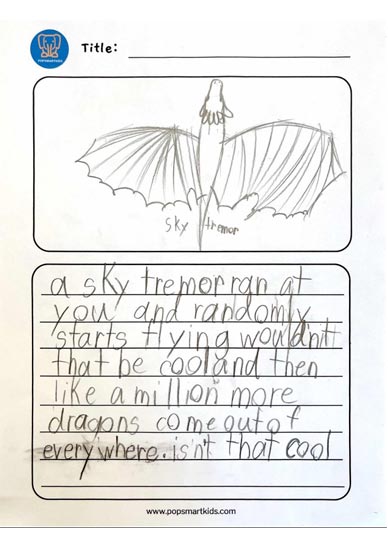 POPSMARTKIDS
Title:
sky tremor
a sky tremor ran at
you and randomly
starts flying wouldn't
that be cool and then
like a million more
dragons come out of
everywhere. isn't that cool
www.popsmartkids.com